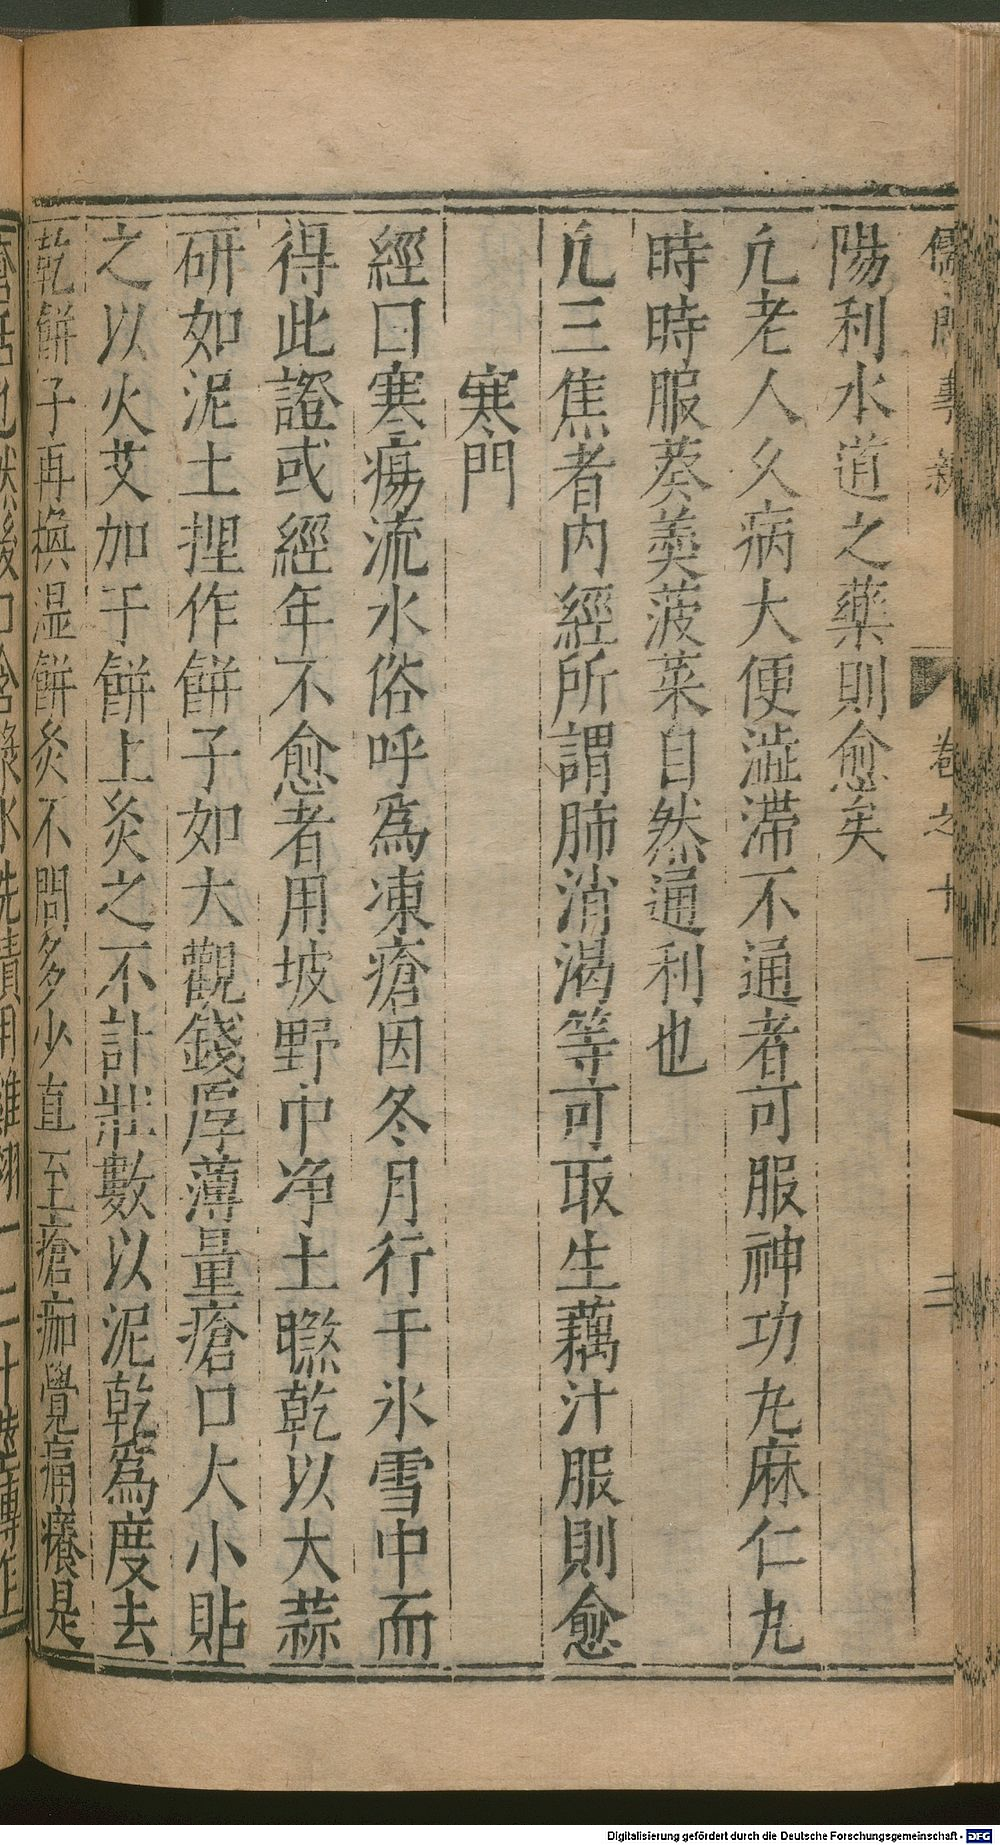 儒門事親
卷之十一
三
陽利水道之藥則愈矣
凢老人久病大便澁滯不通者可服神功丸麻仁丸
時時服葵羹菠菜自然通利也
凢三焦者內經所謂肺消渴等可取生藕汁服則愈
寒門
經曰寒瘍流水俗呼爲凍瘡因冬月行于氷雪中而
得此證或經年不愈者用坡野中净土曬乾以大蒜
研如泥土捏作餅子如大觀錢厚薄量瘡口大小貼
之以火艾加于餅上灸之不計壯數以泥乾爲度去
乾餅子再換濕餅灸不問多少直至瘡痂覺痛癢是
瘡活也然後口含漿水洗漬用雞翎一二十莖縛作
Digitalisierung gefördert durch die Deutsche Forschungsgemeinschaft - DFG